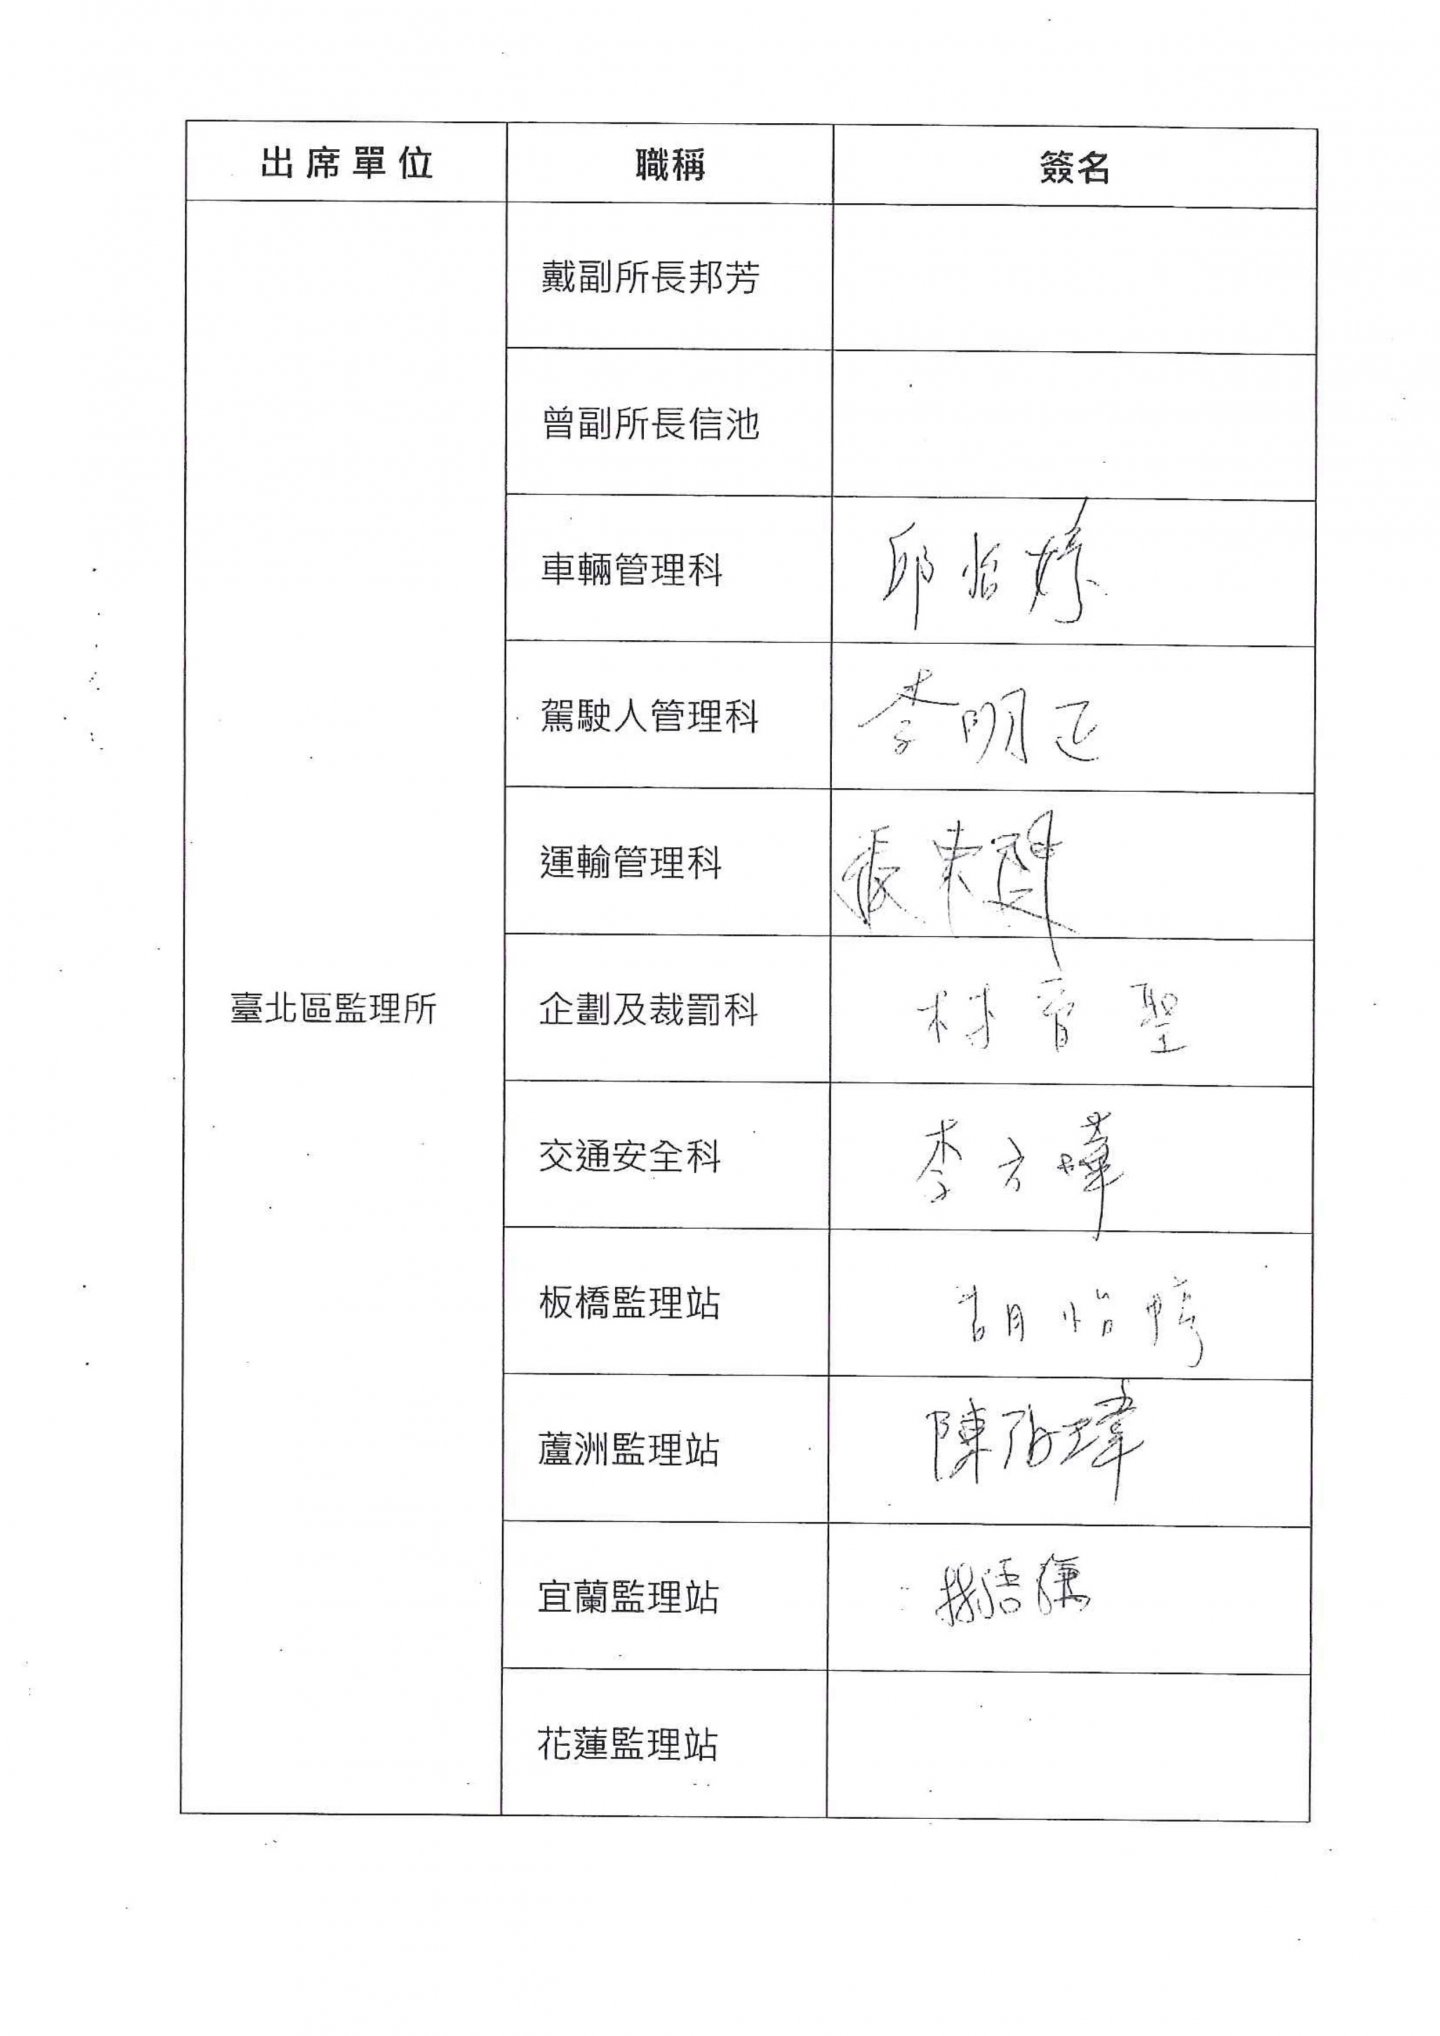 出席單位 職稱 簽名
戴副所長邦芳
曾副所長信池
車輛管理科 邱怡婷
駕駛人管理科 李明正
運輸管理科 張東
臺北區監理所 企劃及裁罰科 林晉聖
交通安全科 李方暐
板橋監理站 胡怡婷
蘆洲監理站 陳瑋
宜蘭監理站
花蓮監理站